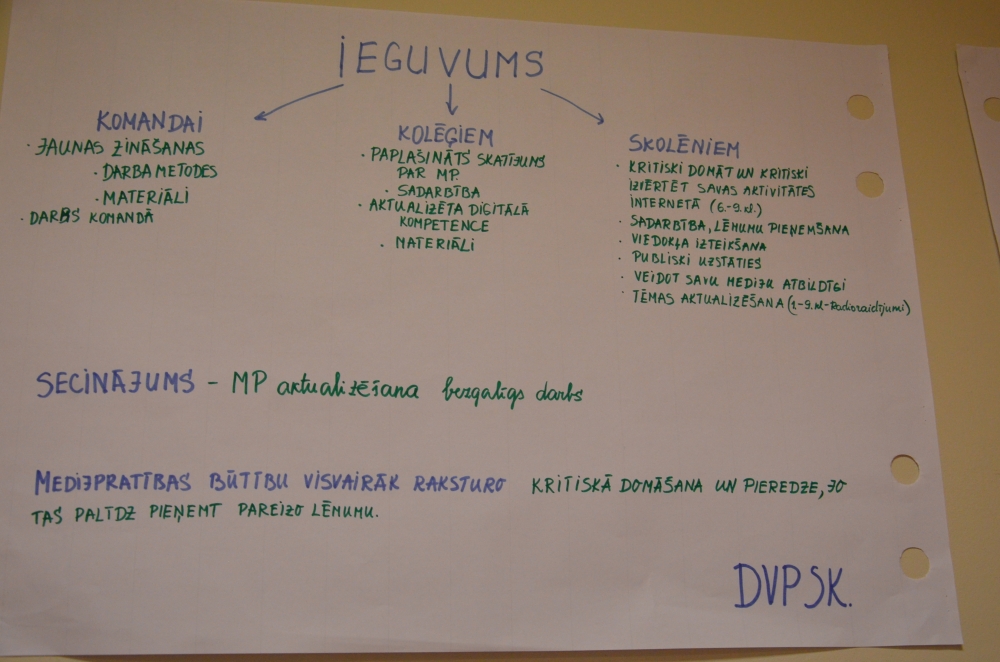 IEGUVUMS
KOMANDAI
· JAUNAS ZINĀŠANAS
· DARBA METODES
· MATERIĀLI
· DARBS KOMANDĀ
KOLĒĢIEM
· PAPLAŠINĀTS SKATĪJUMS
PAR MP.
· SADARBĪBA
· AKTUALIZĒTA DIGITĀLĀ
KOMPETENCE
· MATERIĀLI
SKOLĒNIEM
· KRITISKI DOMĀT UN KRITISKI
IZVĒRTĒT SAVAS AKTIVITĀTES
INTERNETĀ (6.-9.kl.)
· SADARBĪBA, LĒMUMU PIEŅEMŠANA
· VIEDOKĻA IZTEIKŠANA
· PUBLISKI UZSTĀTIES
· VEIDOT SAVU MEDIJU ATBILDĪGI
· TĒMAS AKTUALIZĒŠANA (1.-9.kl.-Radioraidījumi)
SECINĀJUMS - MP aktualizēšana bezgalīgs darbs
MEDIJPRATĪBAS BŪTĪBU VISVAIRĀK RAKSTURO KRITISKĀ DOMĀŠANA UN PIEREDZE, JO
TAS PALĪDZ PIEŅEMT PAREIZO LĒMUMU.
DVPSK.